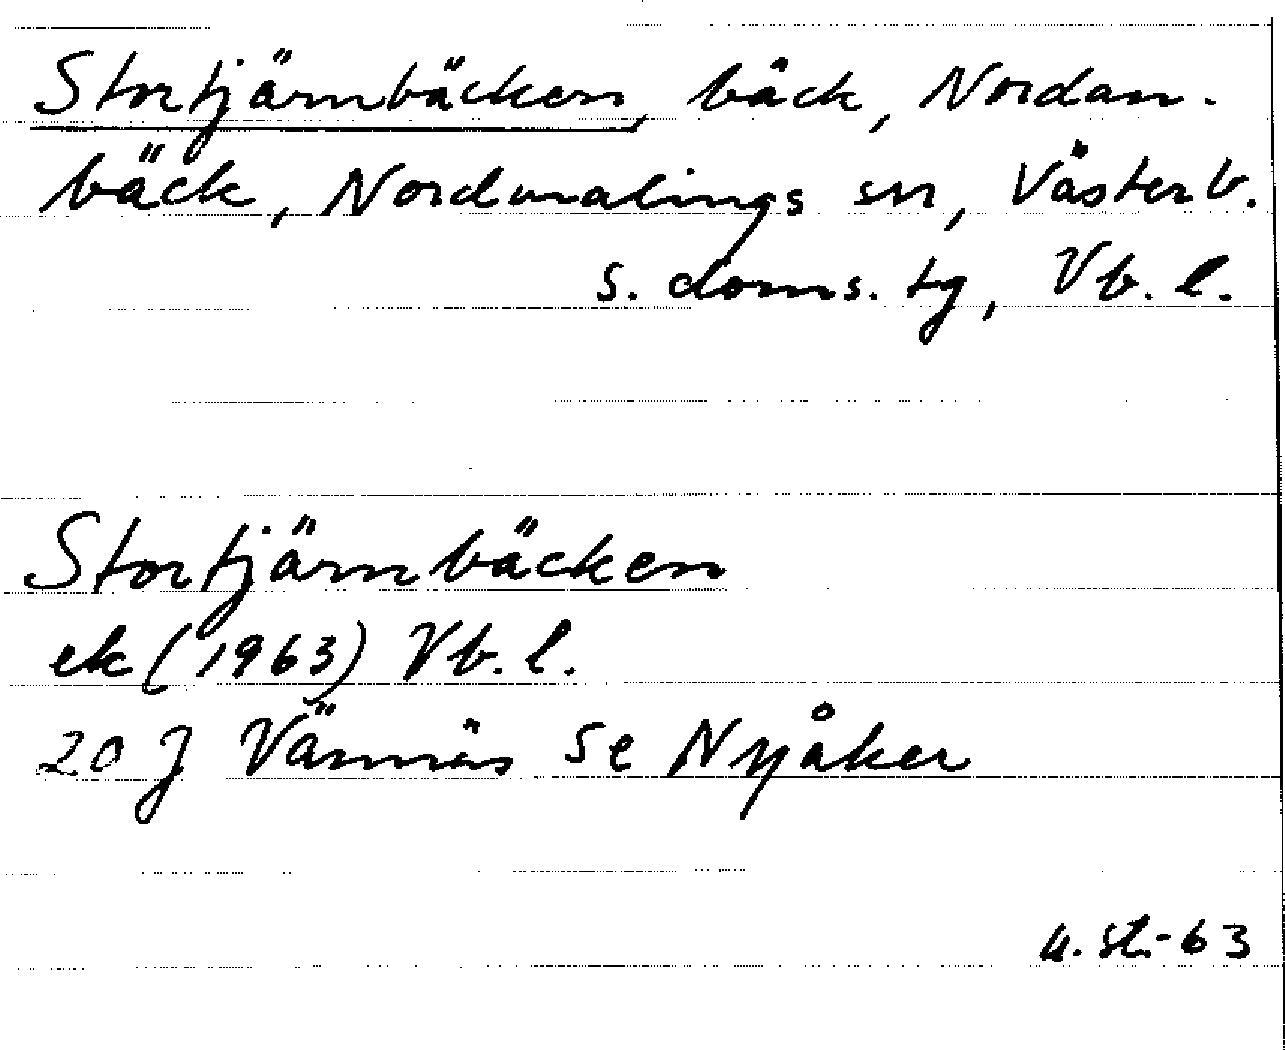 Stortjärnbäcken, bäck, Nordan-
bäck, Nordmalings sn, Västerb.
s. doms. tg, Vb. l.
Stortjärnbäcken
ek (1963) Vb. l.
20 J Vännäs Se Nyåker
u. st. -63